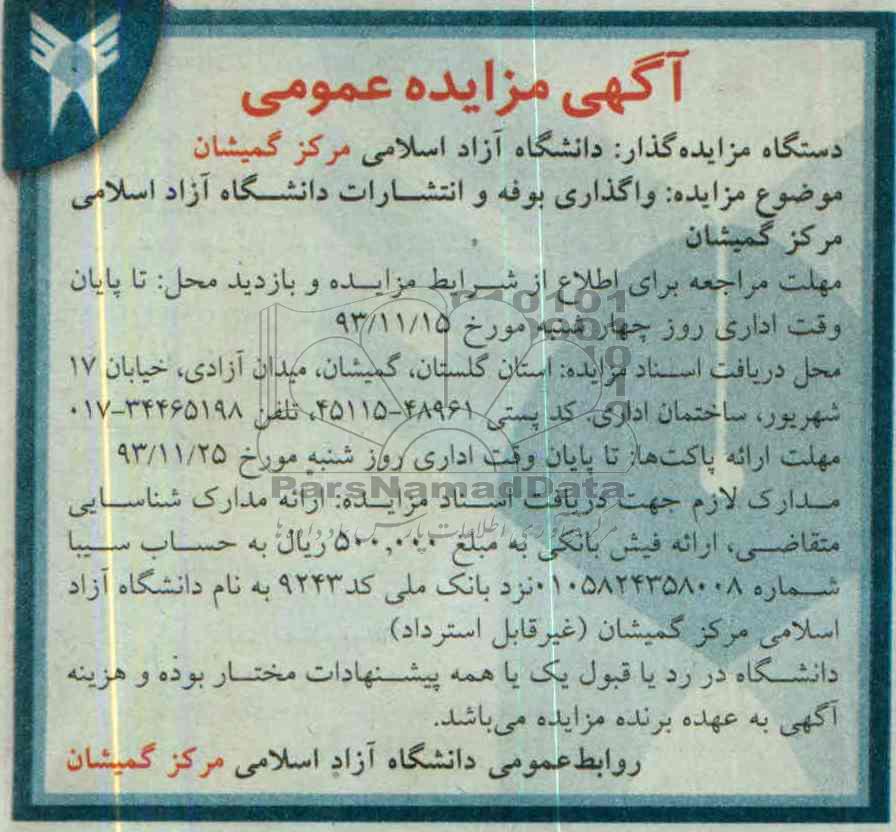 آگهی مزایده عمومی
دستگاه مزایده‌گذار: دانشگاه آزاد اسلامی مرکز گمیشان
موضوع مزایده: واگذاری بوفه و انتشارات دانشگاه آزاد اسلامی
مرکز گمیشان
مهلت مراجعه برای اطلاع از شرایط مزایده و بازدید محل: تا پایان
وقت اداری روز چهارشنبه مورخ ۹۳/۱۱/۱۵
محل دریافت اسناد مزایده: استان گلستان، گمیشان، میدان آزادی، خیابان ۱۷
شهریور، ساختمان اداری. کد پستی ۴۸۹۶۱-۴۵۱۱۵، تلفن ۳۴۴۶۵۱۹۸-۰۱۷
مهلت ارائه پاکت‌ها: تا پایان وقت اداری روز شنبه مورخ ۹۳/۱۱/۲۵
ParsNamadData
مدارک لازم جهت دریافت اسناد مزایده: ارائه مدارک شناسایی
متقاضی، ارائه فیش بانکی به مبلغ ۵۰۰,۰۰۰ ریال به حساب سیبا
شماره ۰۱۰۵۸۲۴۳۵۸۰۰۸ نزد بانک ملی کد ۹۲۴۳ به نام دانشگاه آزاد
اسلامی مرکز گمیشان (غیرقابل استرداد)
دانشگاه در رد یا قبول یک یا همه پیشنهادات مختار بوده و هزینه
آگهی به عهده برنده مزایده می‌باشد.
روابط‌عمومی دانشگاه آزاد اسلامی مرکز گمیشان